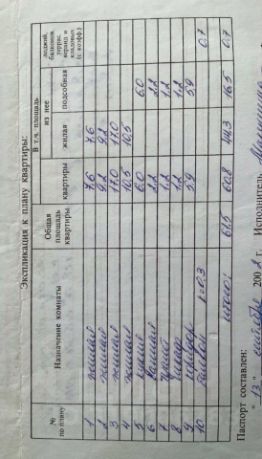 Экспликация к плану квартиры:
№ по плану | Назначение комнаты | Общая площадь квартиры | В т.ч. площадь квартиры | из нее жилая | подсобная | лоджий, балконов, террас, веранд и кладовых (с коэфф.)
1 жилая 7,6 7,6
2 жилая 9,2 9,2
3 жилая 17,0 17,0
4 жилая 10,5 10,5
5 кухня 6,0 6,0
6 2,2 2,2
7 1,2 1,2
8 1,2 1,2
9 коридор 5,9 5,9
10 балкон к=0,3 0,7
итого: 61,5 60,8 44,3 16,5 0,7
Паспорт составлен:
"13" 200 г. Исполнитель